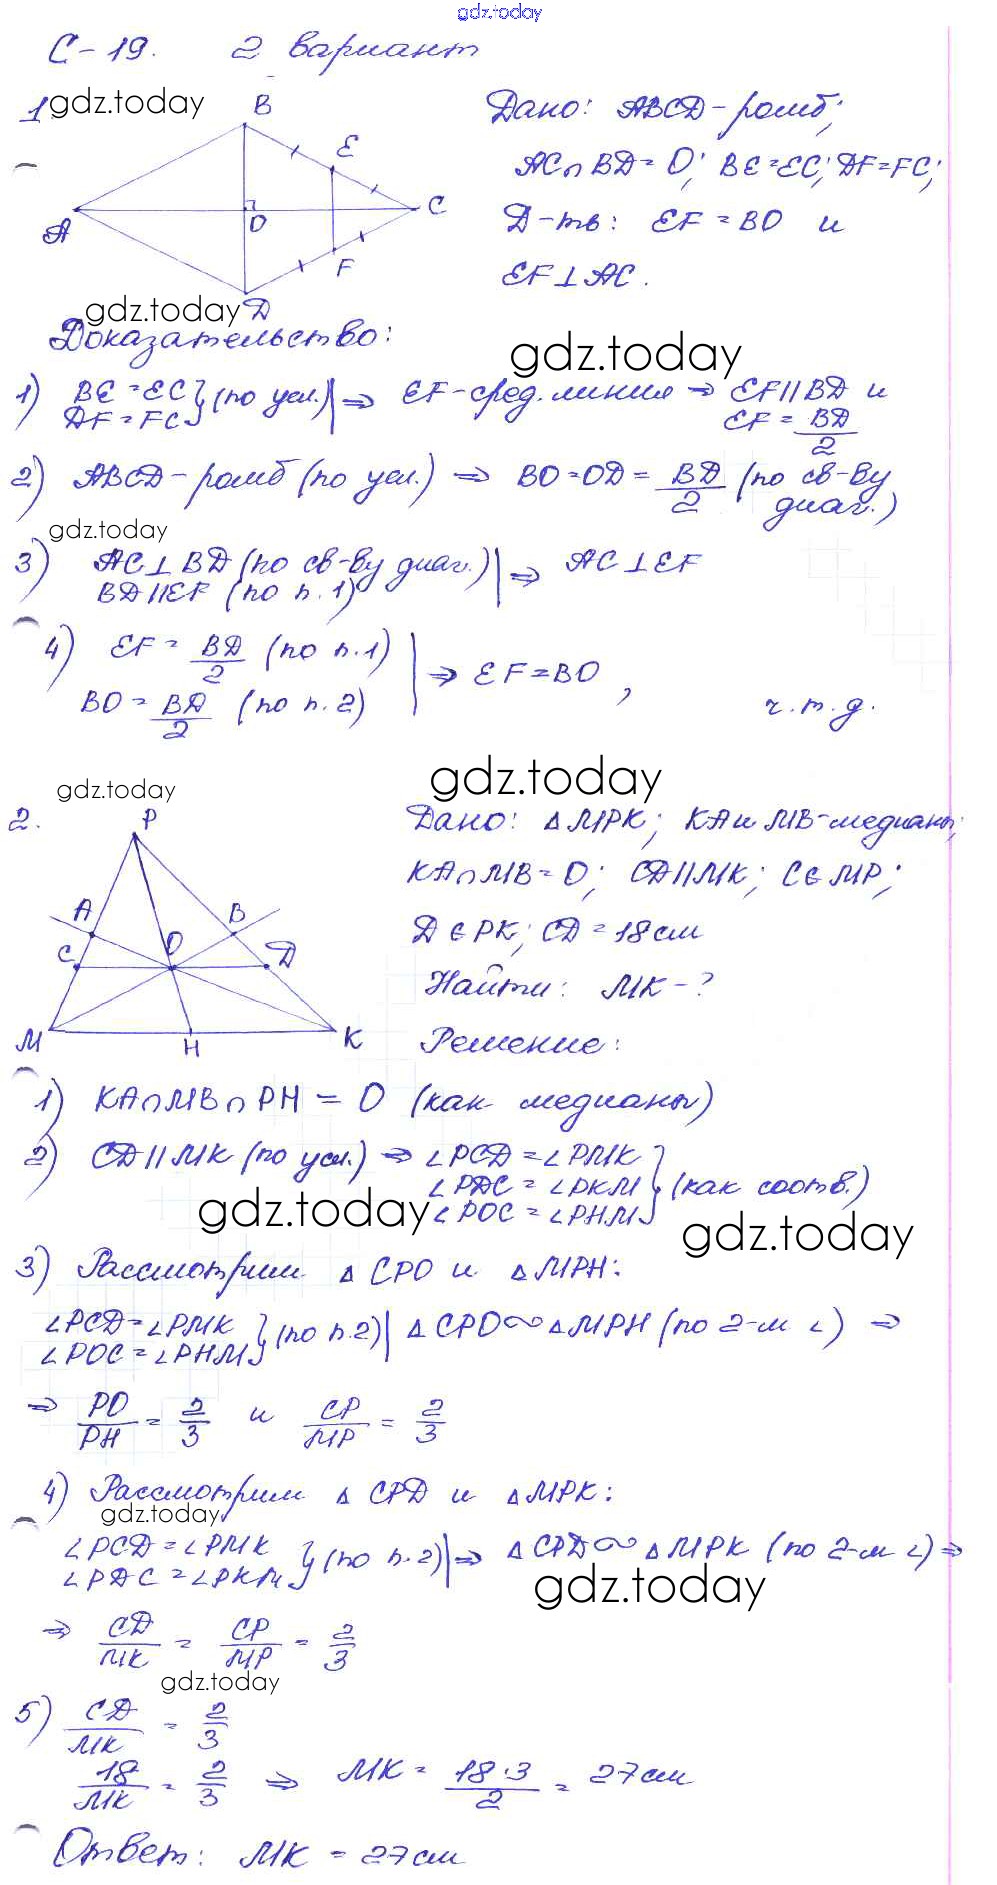 gdz.today
С-19. 2 вариант
1 gdz.today
B
E
A
O
C
F
D
Дано: ABCD - ромб;
AC∩BD=O; BE=EC; DF=FC;
Д-ть: EF = BO и
EF⊥AC.
gdz.today
Доказательство:
gdz.today
1) BE=EC
DF=FC } (по усл.) | ⇒ EF-сред. линия ⇒ EF∥BD и
EF = BD/2
2) ABCD - ромб (по усл.) ⇒ BO=OD = BD/2 (по св-ву
диаг.)
gdz.today
3) AC⊥BD (по св-ву диаг.) | ⇒ AC⊥EF
BD∥EF (по п.1)
4) EF = BD/2 (по п.1) | ⇒ EF=BO,
BO = BD/2 (по п.2)
ч.т.д.
gdz.today
gdz.today
2.
P
A
B
C
O
D
M
H
K
Дано: △MPK; KA и MB-медианы;
KA∩MB=O; CD∥MK; C∈MP;
D∈PK; CD=18см
Найти: MK-?
Решение:
1) KA∩MB∩PH = O (как медианы)
2) CD∥MK (по усл.) ⇒ ∠PCD=∠PMK
∠PDC=∠PKM } (как соотв.)
∠POC=∠PHM
gdz.today
gdz.today
3) Рассмотрим △CPO и △MPH:
∠PCD=∠PMK
∠POC=∠PHM } (по п.2) | △CPO∾△MPH (по 2-м ∠) ⇒
⇒ PO/PH = 2/3 и CP/MP = 2/3
4) Рассмотрим △CPD и △MPK:
gdz.today
∠PCD=∠PMK
∠PDC=∠PKM } (по п.2) | ⇒ △CPD∾△MPK (по 2-м ∠) ⇒
gdz.today
⇒ CD/MK = CP/MP = 2/3
gdz.today
5) CD/MK = 2/3
18/MK = 2/3 ⇒ MK = 18·3/2 = 27см
Ответ: MK = 27см